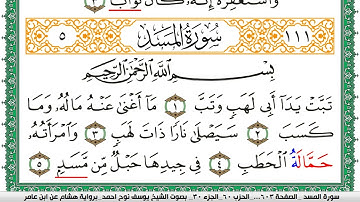 وَاسْتَغْفِرْهُ إِنَّهُ كَانَ تَوَّابًا ٣
١١١ سُورَةُ الْمَسَدِ ٥
بِسْمِ اللَّهِ الرَّحْمَٰنِ الرَّحِيمِ
تَبَّتْ يَدَآ أَبِي لَهَبٍ وَتَبَّ ١ مَآ أَغْنَىٰ عَنْهُ مَالُهُ وَمَا
كَسَبَ ٢ سَيَصْلَىٰ نَارًا ذَاتَ لَهَبٍ ٣ وَامْرَأَتُهُ
حَمَّالَةُ الْحَطَبِ ٤ فِي جِيدِهَا حَبْلٌ مِّن مَّسَدٍ ٥
سورة المسد _ الصفحة ٦٠٣ ... الحزب ٦٠_الجزء ٣٠ . بصوت الشيخ يوسف نوح احمد برواية هشام عن ابن عامر